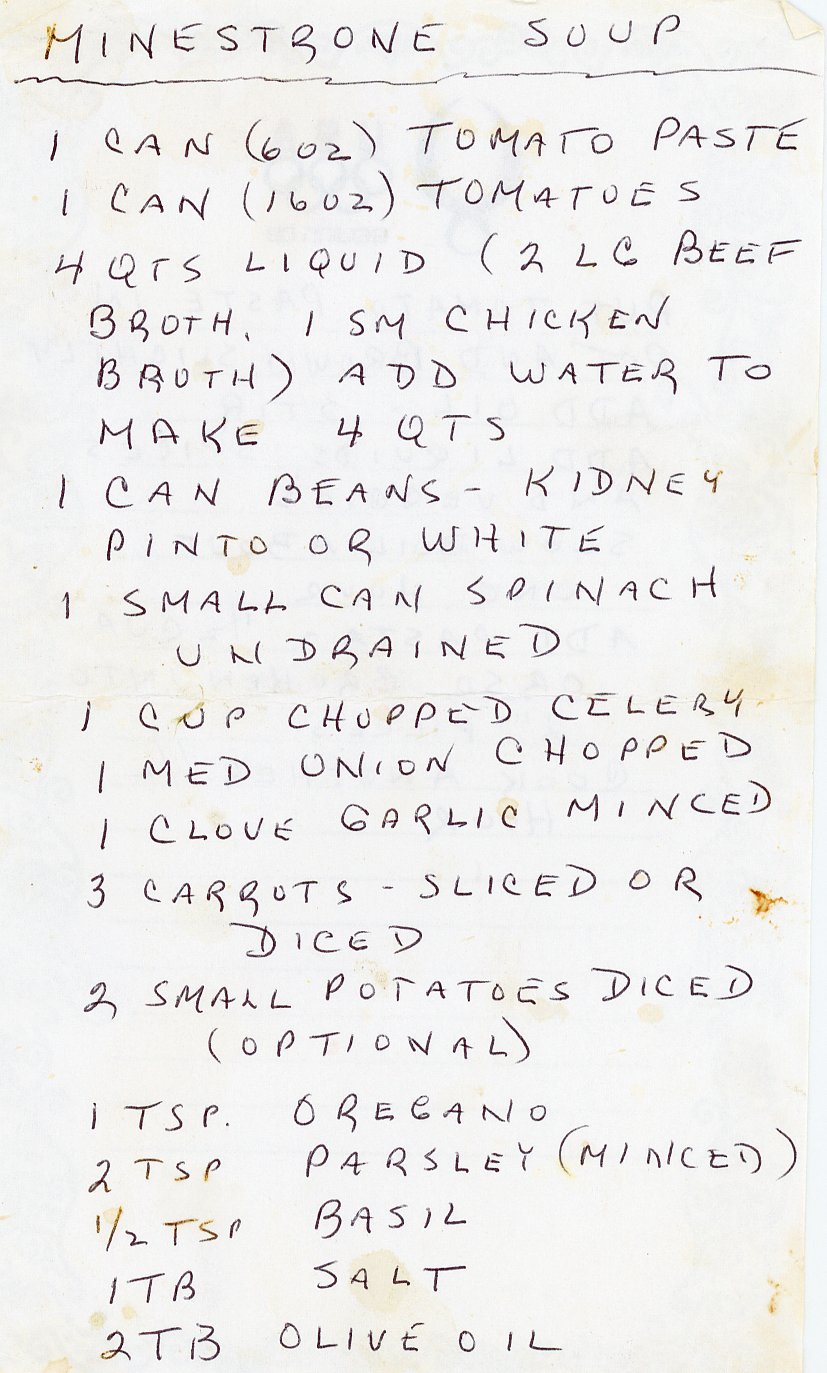 MINESTRONE SOUP
1 CAN (6 OZ) TOMATO PASTE
1 CAN (16 OZ) TOMATOES
4 QTS LIQUID (2 LG BEEF
BROTH, 1 SM CHICKEN
BROTH) ADD WATER TO
MAKE 4 QTS
1 CAN BEANS - KIDNEY
PINTO OR WHITE
1 SMALL CAN SPINACH
UNDRAINED
1 CUP CHOPPED CELERY
1 MED ONION CHOPPED
1 CLOVE GARLIC MINCED
3 CARROTS - SLICED OR
DICED
2 SMALL POTATOES DICED
(OPTIONAL)
1 TSP. OREGANO
2 TSP PARSLEY (MINCED)
1/2 TSP BASIL
1 TB SALT
2 TB OLIVE OIL